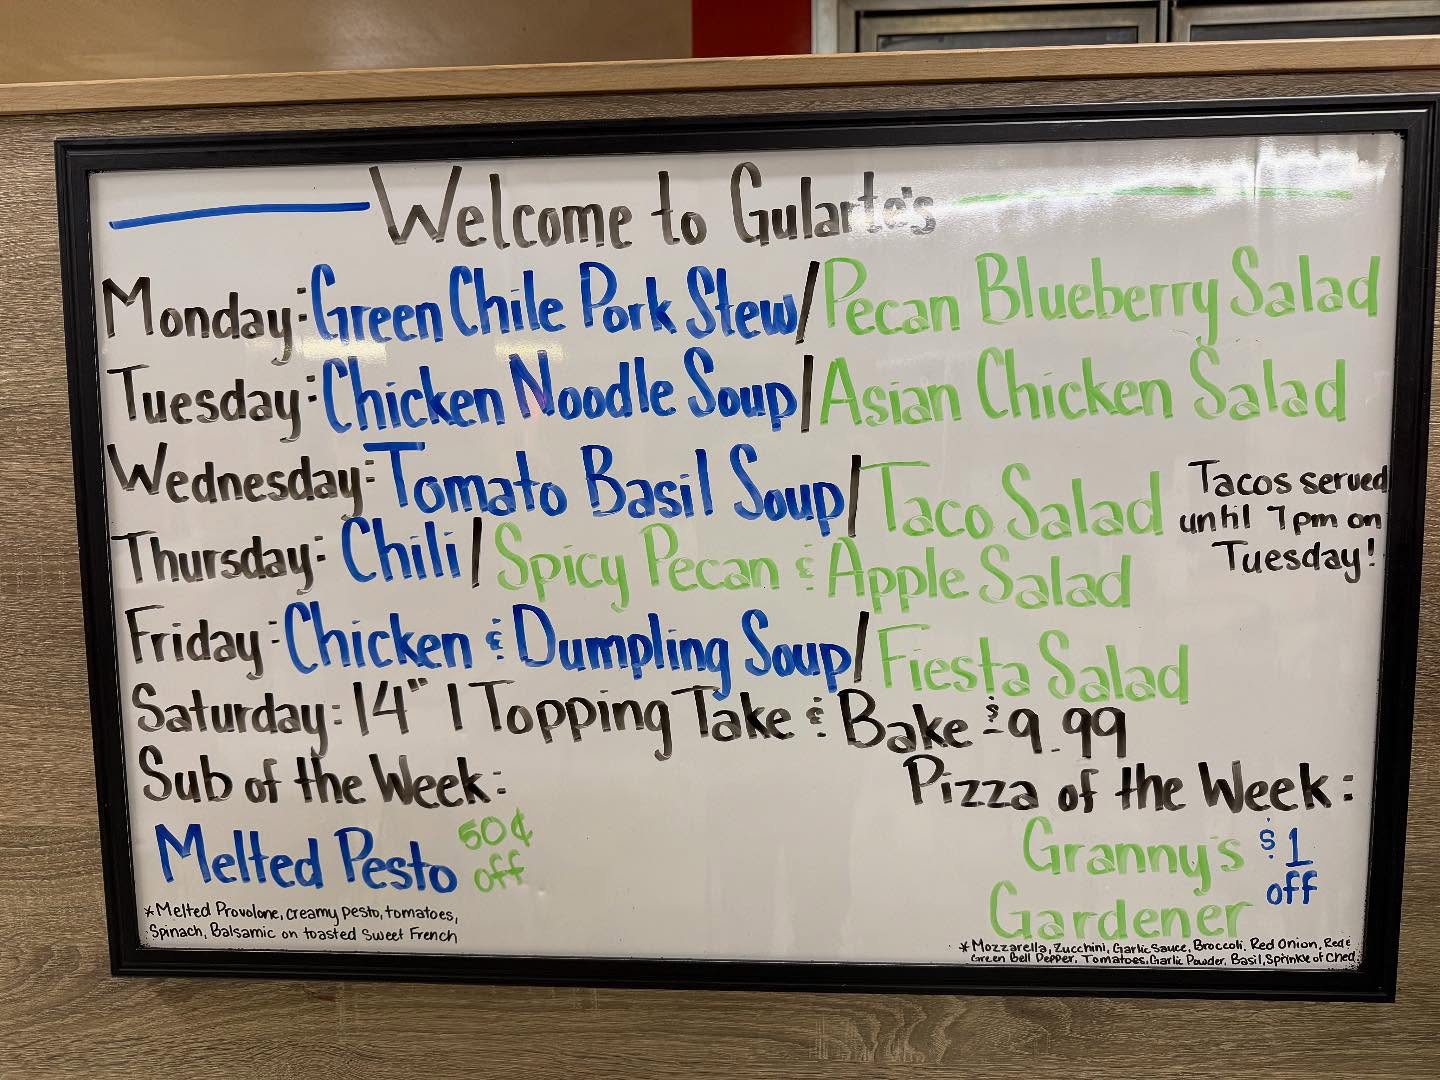 Welcome to Gularte's
Monday: Green Chile Pork Stew/Pecan Blueberry Salad
Tuesday: Chicken Noodle Soup/Asian Chicken Salad
Wednesday: Tomato Basil Soup/Taco Salad
Tacos served
until 7pm on
Tuesday!
Thursday: Chili/Spicy Pecan & Apple Salad
Friday: Chicken & Dumpling Soup/Fiesta Salad
Saturday: 14" 1 Topping Take & Bake $9.99
Sub of the Week:
Melted Pesto
50¢
off
*Melted Provolone, creamy pesto, tomatoes,
Spinach, Balsamic on toasted Sweet French
Pizza of the Week:
Granny's
Gardener
$1
off
*Mozzarella, Zucchini, Garlic Sauce, Broccoli, Red Onion, Red &
Green Bell Pepper, Tomatoes, Garlic Powder, Basil, Sprinkle of Ched